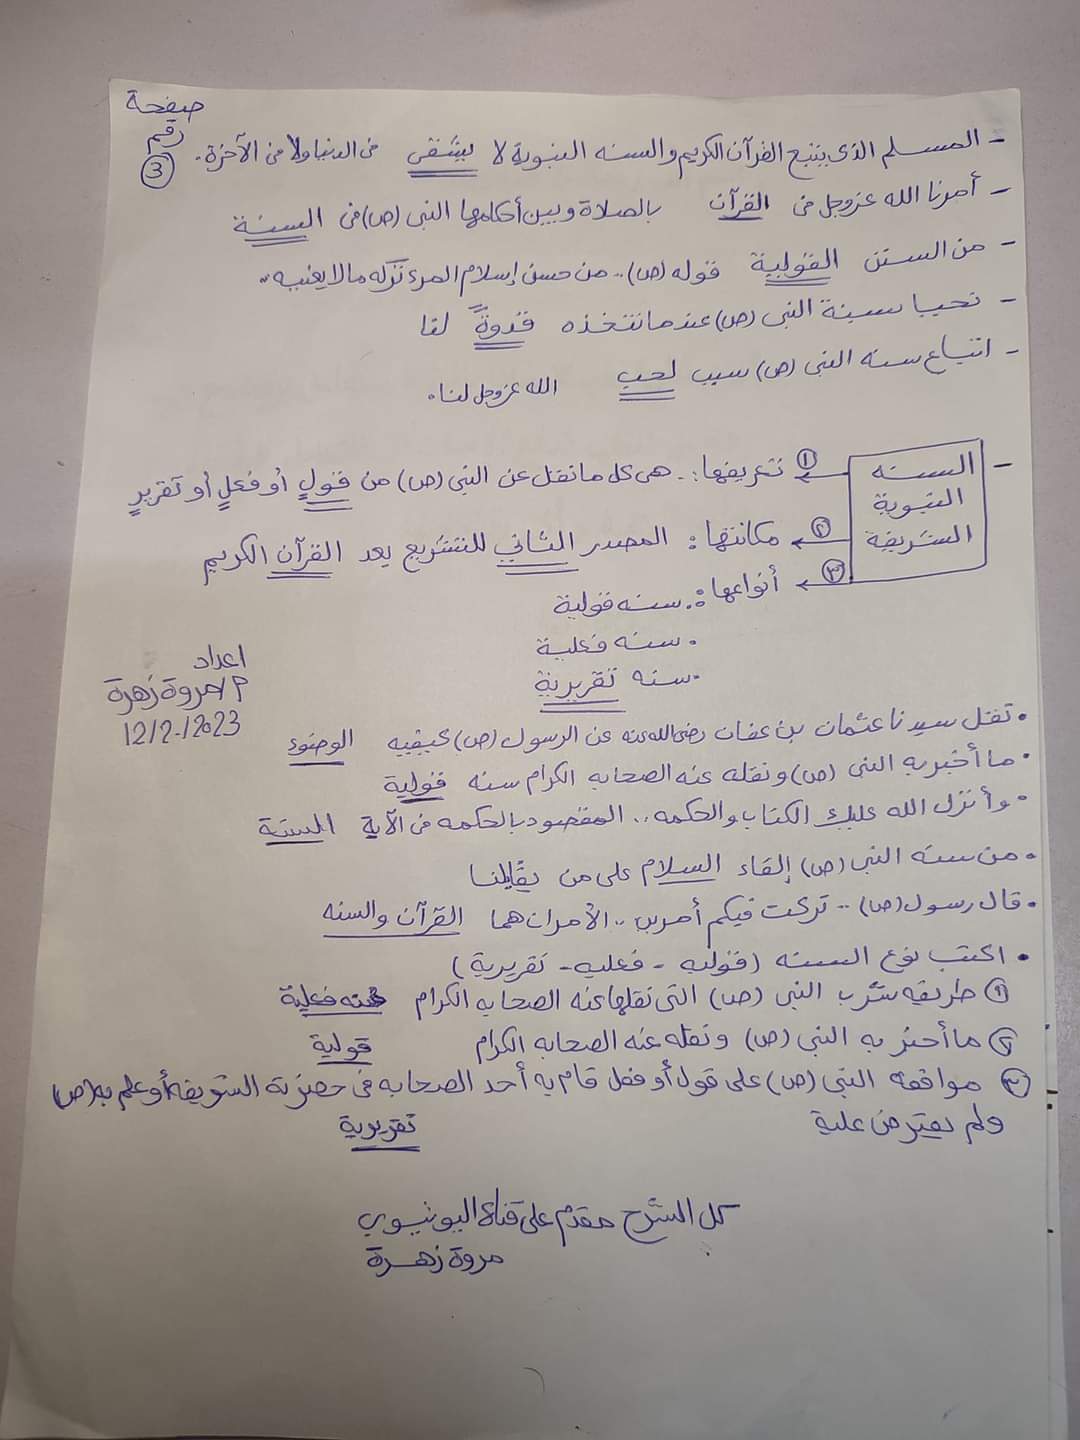 صفحة
رقم
3
- المسلم الذى يتبع القرآن الكريم والسنه النبوية لا يشقى فى الدنيا ولا فى الآخرة.
- أمرنا الله عزوجل فى القرآن بالصلاة وبين أحكامها النبى (ص) فى السنة
- من السنن القولية قوله (ص).. من حسن إسلام المرء تركه مالا يعنيه..
- نحيا سنة النبى (ص) عندما نتخذه قدوةً لنا
- اتباع سنه النبى (ص) سبب لحب الله عزوجل لنا.
- السنه النبوية الشريفة
① تعريفها: هى كل ما نقل عن النبى (ص) من قولٍ أو فعلٍ أو تقريرٍ
② مكانتها: المصدر الثاني للتشريع بعد القرآن الكريم
③ أنواعها: . سنه قولية
. سنه فعلية
. سنه تقريرية
اعداد
م/مروة زهرة
12/2/2023
. نقل سيدنا عثمان بن عفان رضى الله عنه عن الرسول (ص) كيفيه الوضوء
. ما أخبر به النبى (ص) ونقله عنه الصحابه الكرام سنه قولية
. وأنزل الله عليك الكتاب والحكمه.. المقصود بالحكمه فى الآية السنة
. من سنه النبى (ص) إلقاء السلام على من يقابلنا
. قال رسول (ص) .. تركت فيكم أمرين.. الأمران هما القرآن والسنه
. اكتب نوع السنه (قوليه - فعليه - تقريرية)
① طريقه شرب النبى (ص) التى نقلها عنه الصحابه الكرام سنه فعلية
② ما أخبر به النبى (ص) ونقله عنه الصحابه الكرام قولية
③ موافقه النبى (ص) على قول أو فعل قام به أحد الصحابه فى حضرته الشريفه أو علم به (ص)
ولم يعترض علية تقريرية
كل الشرح مقدم على قناة اليوتيوب
مروة زهرة